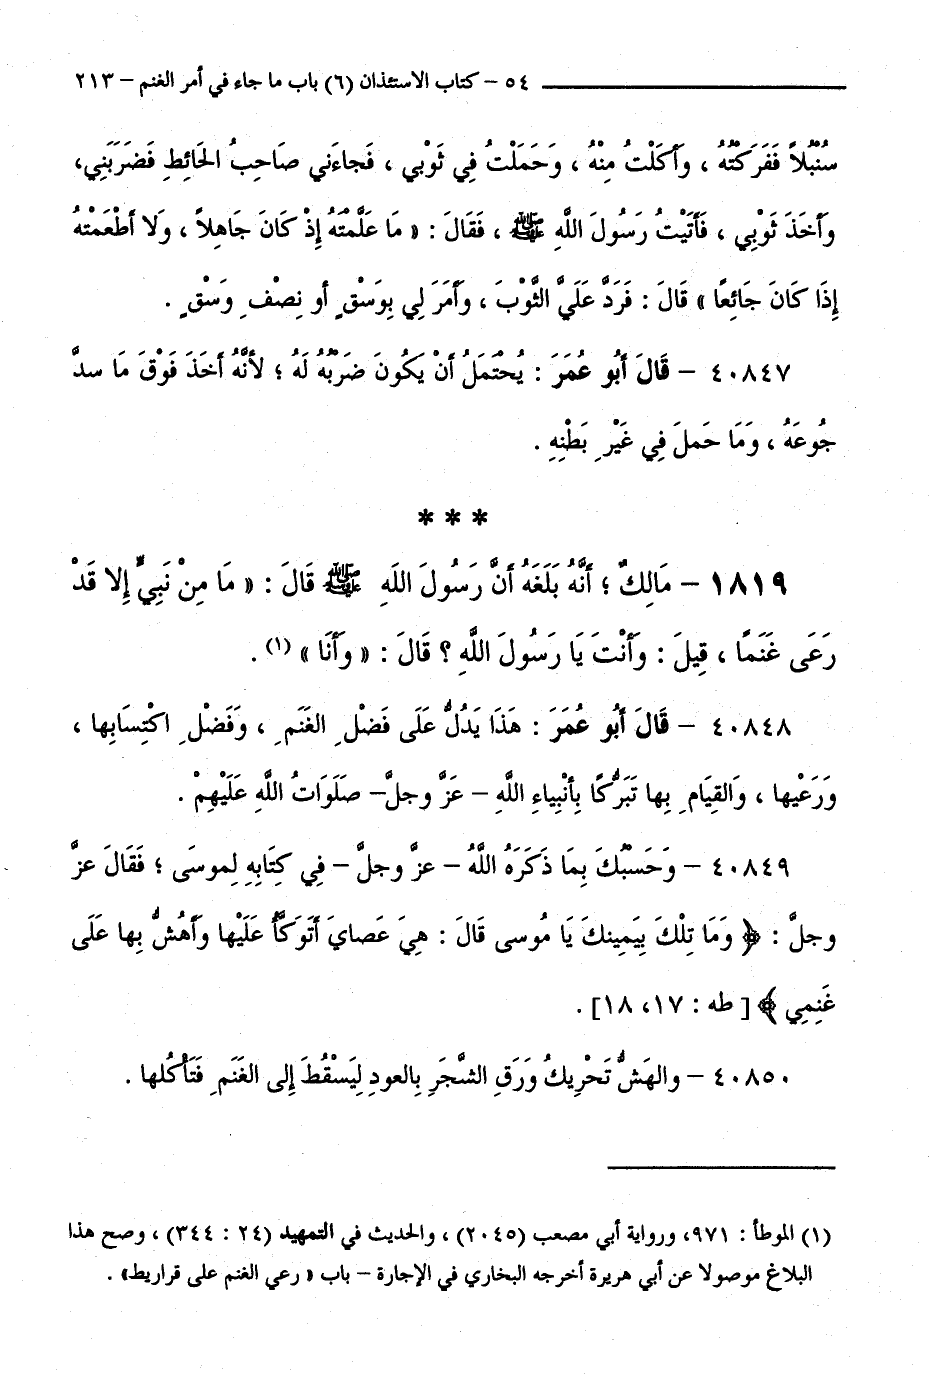 ٥٤ – كتاب الاستئذان (٦) باب ما جاء في أمر الغنم – ٢١٣
سُنْبُلاً فَفَرَكْتُهُ ، وَأَكَلْتُ مِنْهُ ، وَحَمَلْتُ فِي ثَوْبِي ، فَجاءَنِي صَاحِبُ الحَائِطِ فَضَرَبَنِي،
وَأَخَذَ ثَوْبِي ، فَأَتَيْتُ رَسُولَ اللَّهِ ﷺ ، فَقَالَ : « مَا عَلَّمْتَهُ إِذْ كَانَ جَاهِلاً ، وَلَا أَطْعَمْتَهُ
إِذَا كَانَ جَائِعًا » قَالَ : فَرَدَّ عَلَيَّ الثَّوْبَ ، وَأَمَرَ لِي بِوَسْقٍ أَو نِصْفِ وَسْقٍ .
٤٠٨٤٧ – قَالَ أَبُو عُمَرَ : يُحْتَمَلُ أَنْ يَكُونَ ضَرْبُهُ لَهُ ؛ لأَنَّهُ أَخَذَ فَوْقَ مَا سدَّ
جُوعَهُ ، وَمَا حَملَ فِي غَيْرِ بَطْنِهِ .
* * *
١٨١٩ – مَالِكٌ ؛ أَنَّهُ بَلَغَهُ أَنَّ رَسُولَ اللَهِ ﷺ قَالَ : « مَا مِنْ نَبِيٍّ إِلا قَدْ
رَعَى غَنَمًا ، قِيلَ : وَأَنْتَ يَا رَسُولَ اللَّهِ ؟ قَالَ : « وَأَنَا » (١) .
٤٠٨٤٨ – قَالَ أَبُو عُمَرَ : هَذَا يَدُلُّ عَلَى فَضْلِ الغَنَمِ ، وَفَضْلِ اكْتِسَابِها ،
وَرَعْيِها ، وَالقِيَامِ بِها تَبَرُّكًا بِأَنْبِياءِ اللَّهِ – عَزَّ وجلَّ– صَلَوَاتُ اللَّهِ عَلَيْهِمْ .
٤٠٨٤٩ – وَحَسْبُكَ بِمَا ذَكَرَهُ اللَّهُ – عزَّ وجلَّ – فِي كِتَابِهِ لِموسَى ؛ فَقَالَ عزَّ
وجلَّ : ﴿ وَمَا تِلْكَ بِيَمِينكَ يَا مُوسى قَالَ : هِيَ عَصايَ أَتَوَكَّأُ عَلَيْها وأَهُشُّ بِها عَلَى
غَنِمِي ﴾ [ طه : ١٧، ١٨] .
٤٠٨٥٠ – والهَشُّ تَحْرِيكُ وَرَقِ الشَّجَرِ بِالعودِ لِيَسْقُطَ إِلى الغَنَمِ فَتَأْكُلها .
(١) الموطأ : ٩٧١، ورواية أبي مصعب (٢٠٤٥) ، والحديث في التمهيد (٢٤ : ٣٤٤) ، وصح هذا
البلاغ موصولا عن أبي هريرة أخرجه البخاري في الإجارة – باب « رعي الغنم على قراريط» .